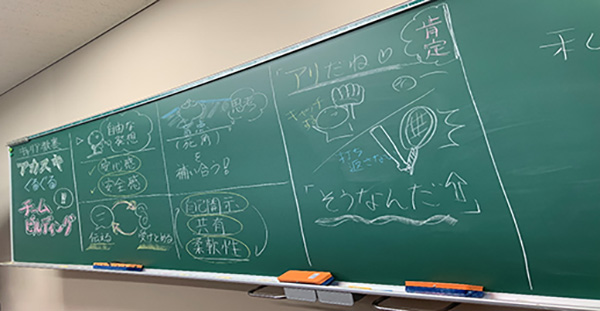 アカスヤ
ぐるぐる
チーム
ビルディング
自由な
発想
✓安心感
✓安全感
伝える
受けとめる
思考
(死角)
を
補い合う!!
自己開示
共有
柔軟性
肯定
「アリだね♡
キャッチ
打ち
返さない
「そうなんだ⇧」